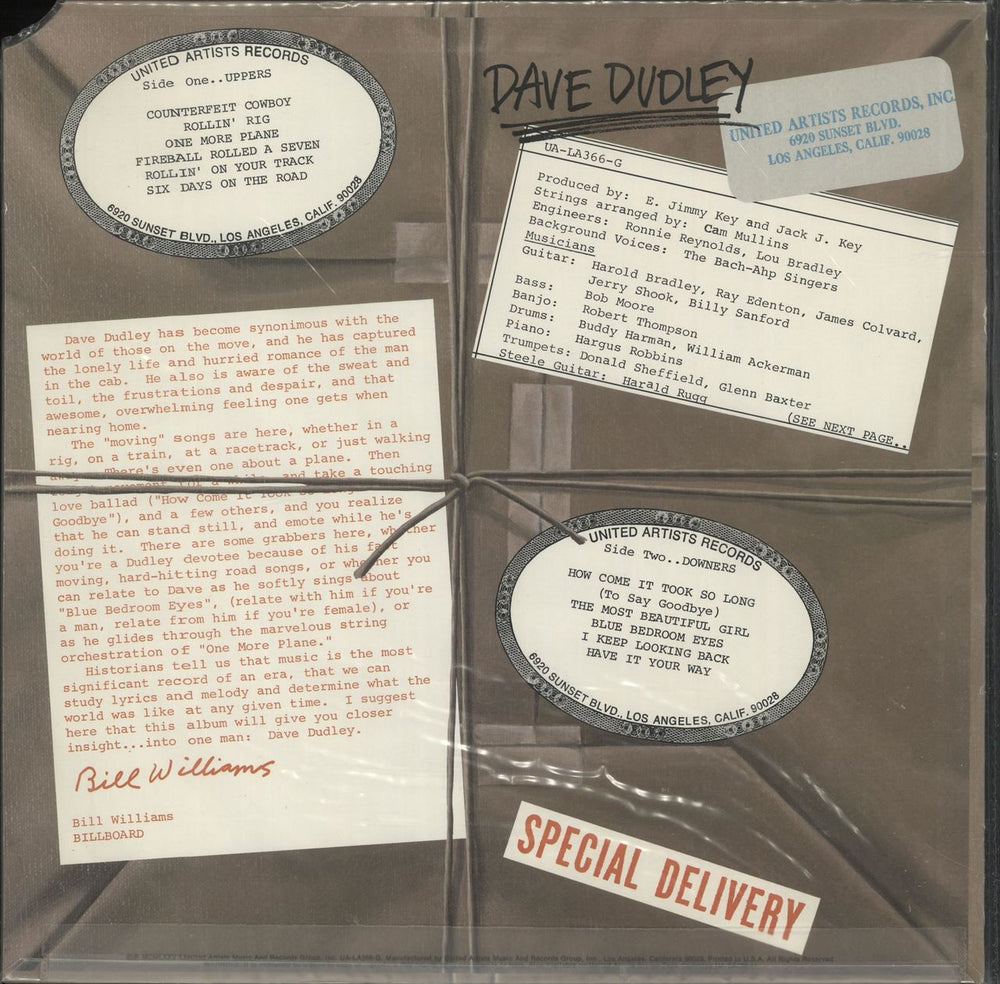 UNITED ARTISTS RECORDS
Side One..UPPERS
COUNTERFEIT COWBOY
ROLLIN' RIG
ONE MORE PLANE
FIREBALL ROLLED A SEVEN
ROLLIN' ON YOUR TRACK
SIX DAYS ON THE ROAD
6920 SUNSET BLVD., LOS ANGELES, CALIF. 90028
DAVE DUDLEY
UNITED ARTISTS RECORDS, INC.
6920 SUNSET BLVD.
LOS ANGELES, CALIF. 90028
UA-LA366-G
Produced by: E. Jimmy Key and Jack J. Key
Strings arranged by: Cam Mullins
Engineers: Ronnie Reynolds, Lou Bradley
Background Voices: The Bach-Ahp Singers
Musicians
Guitar: Harold Bradley, Ray Edenton, James Colvard,
Jerry Shook, Billy Sanford
Bass: Bob Moore
Banjo: Robert Thompson
Drums: Buddy Harman, William Ackerman
Piano: Hargus Robbins
Trumpets: Donald Sheffield, Glenn Baxter
Steele Guitar: Harald Rugg
(SEE NEXT PAGE..
Dave Dudley has become synonimous with the
world of those on the move, and he has captured
the lonely life and hurried romance of the man
in the cab. He also is aware of the sweat and
toil, the frustrations and despair, and that
awesome, overwhelming feeling one gets when
nearing home.
The "moving" songs are here, whether in a
rig, on a train, at a racetrack, or just walking
There's even one about a plane. Then
and take a touching
love ballad ("How Come It
Goodbye"), and a few others, and you realize
that he can stand still, and emote while he's
doing it. There are some grabbers here, whether
you're a Dudley devotee because of his fast
moving, hard-hitting road songs, or whether you
can relate to Dave as he softly sings about
"Blue Bedroom Eyes", (relate with him if you're
a man, relate from him if you're female), or
as he glides through the marvelous string
orchestration of "One More Plane."
Historians tell us that music is the most
significant record of an era, that we can
study lyrics and melody and determine what the
world was like at any given time. I suggest
here that this album will give you closer
insight...into one man: Dave Dudley.
Bill Williams
Bill Williams
BILLBOARD
UNITED ARTISTS RECORDS
Side Two..DOWNERS
HOW COME IT TOOK SO LONG
(To Say Goodbye)
THE MOST BEAUTIFUL GIRL
BLUE BEDROOM EYES
I KEEP LOOKING BACK
HAVE IT YOUR WAY
6920 SUNSET BLVD., LOS ANGELES, CALIF. 90028
SPECIAL DELIVERY
United Artists Music And Records Group, Inc. UA-LA366-G. Manufactured by United Artists Music And Records Group, Inc., Los Angeles, California 90028. Printed in U.S.A. All Rights Reserved